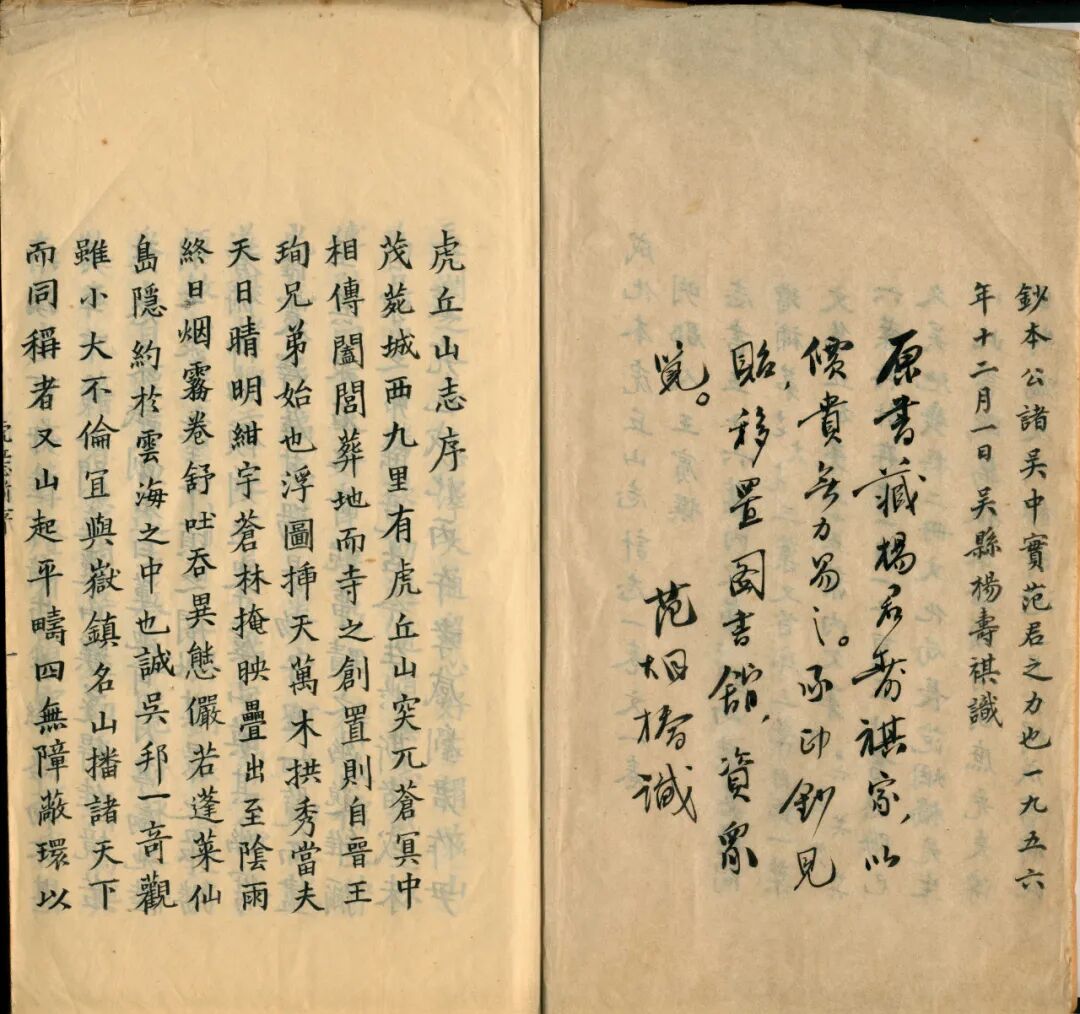 鈔本公諸吳中實范君之力也一九五六
年十二月一日吳縣楊壽祺識
原書藏楊君壽祺家，以
價貴無力易之。承印鈔見
貽，移置图書館，資眾
覽。
范烟橋識
虎丘山志序
茂苑城西九里有虎丘山突兀蒼冥中
相傳闔閭葬地而寺之創置則自晉王
珣兄弟始也浮圖揷天萬木拱秀當夫
天日晴明紺宇蒼林掩映疊出至陰雨
終日烟霧卷舒吐吞異態儼若蓬萊仙
島隱約於雲海之中也誠吳邦一竒觀
雖小大不倫宜與嶽鎮名山播諸天下
而同稱者又山起平疇四無障蔽環以